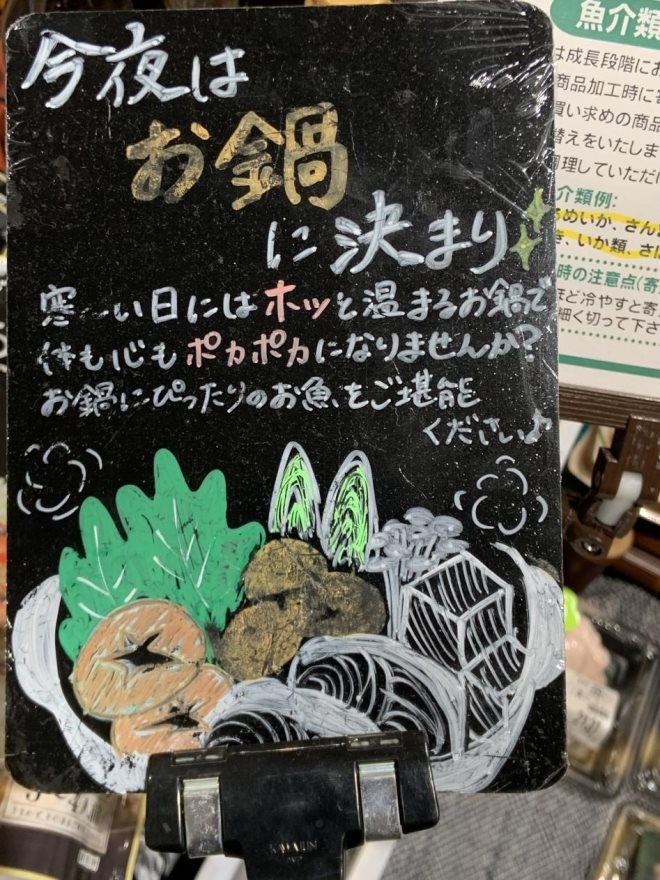 今夜は
お鍋
に決まり
寒〜い日にはホッと温まるお鍋で
体も心もポカポカになりませんか?
お鍋にぴったりのお魚をご堪能
ください♪
魚介類
は成長段階にお
商品加工時に
買い求めの商品
替えをいたしま
調理していただい
介類例:
るめいか、さん
き、いか類、さ
時の注意点(寄
ほど冷やすと寄
細く切って下さ